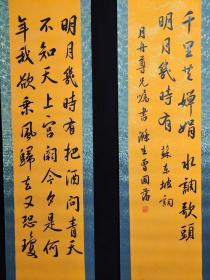 千里共嬋娟 水調歌頭
明月幾時有 蘇東坡詞
月舟尊兄囑書 滌生曾國藩
明月幾時有把酒問青天
不知天上宮闕今夕是何
年我欲乘風歸去又恐瓊